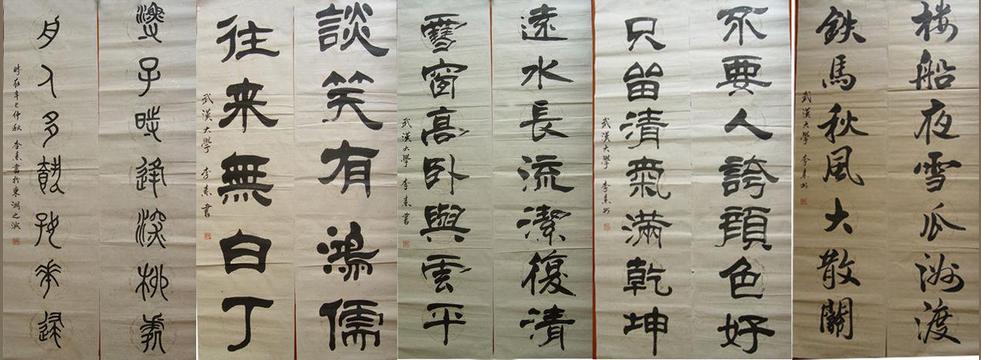 楼船夜雪瓜洲渡
鉄馬秋風大散關
武漢大學 李素书
不要人誇顔色好
只留清氣滿乾坤
武漢大學 李素书
遠水長流潔復清
雪窗高卧與雲平
武漢大學 李素書
談笑有鴻儒
往来無白丁
武漢大學 李素書
子逢深柳
人多花歸
時在辛巳仲秋 李素書於東湖之濱